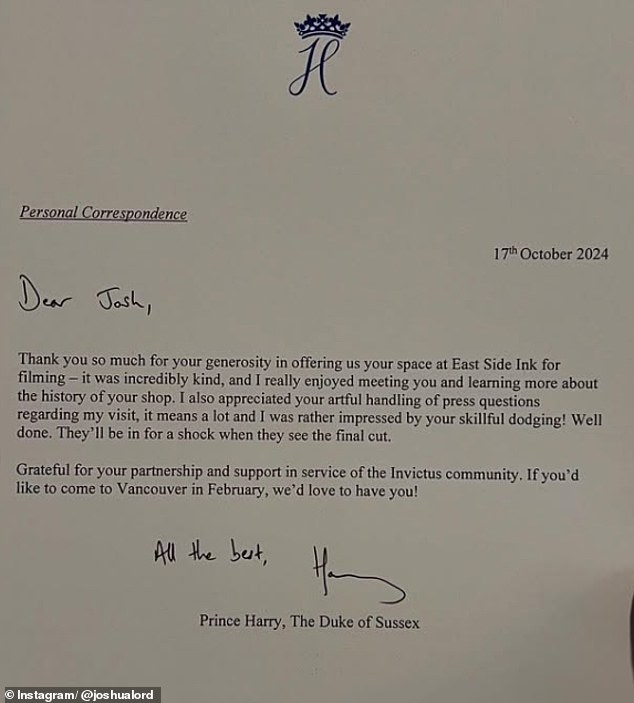 H
Personal Correspondence
17th October 2024
Dear Josh,
Thank you so much for your generosity in offering us your space at East Side Ink for
filming – it was incredibly kind, and I really enjoyed meeting you and learning more about
the history of your shop. I also appreciated your artful handling of press questions
regarding my visit, it means a lot and I was rather impressed by your skillful dodging! Well
done. They’ll be in for a shock when they see the final cut.
Grateful for your partnership and support in service of the Invictus community. If you’d
like to come to Vancouver in February, we’d love to have you!
All the best,
Harry
Prince Harry, The Duke of Sussex
© Instagram/ @joshualord